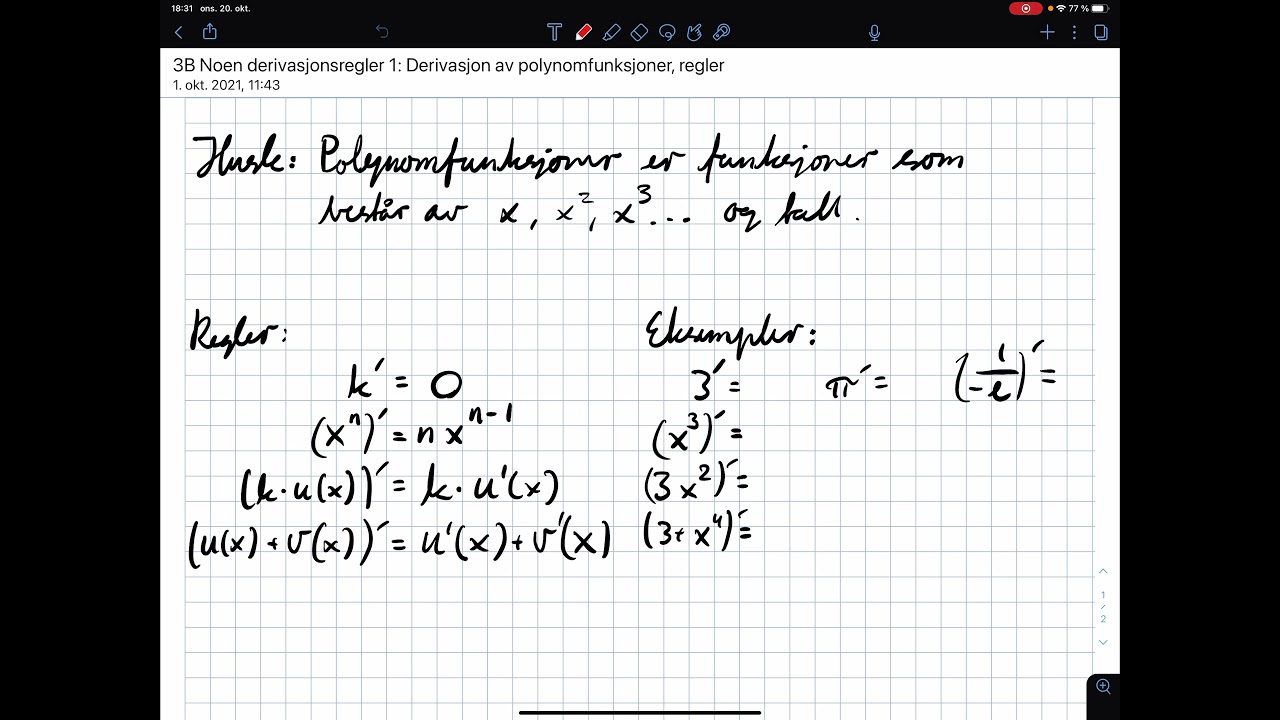 18:31 ons. 20. okt.
77 %
3B Noen derivasjonsregler 1: Derivasjon av polynomfunksjoner, regler
1. okt. 2021, 11:43
Husk: Polynomfunksjoner er funksjoner som
består av x, x², x³... og tall.
Regler:
k´ = 0
(xⁿ)´ = n xⁿ⁻¹
(k·u(x))´ = k·u'(x)
(u(x) + v(x))´ = u'(x) + v'(x)
Eksempler:
3´ = π´ = (1/-e)´ =
(x³)´ =
(3x²)´ =
(3+x⁴)´ =
1
/
2